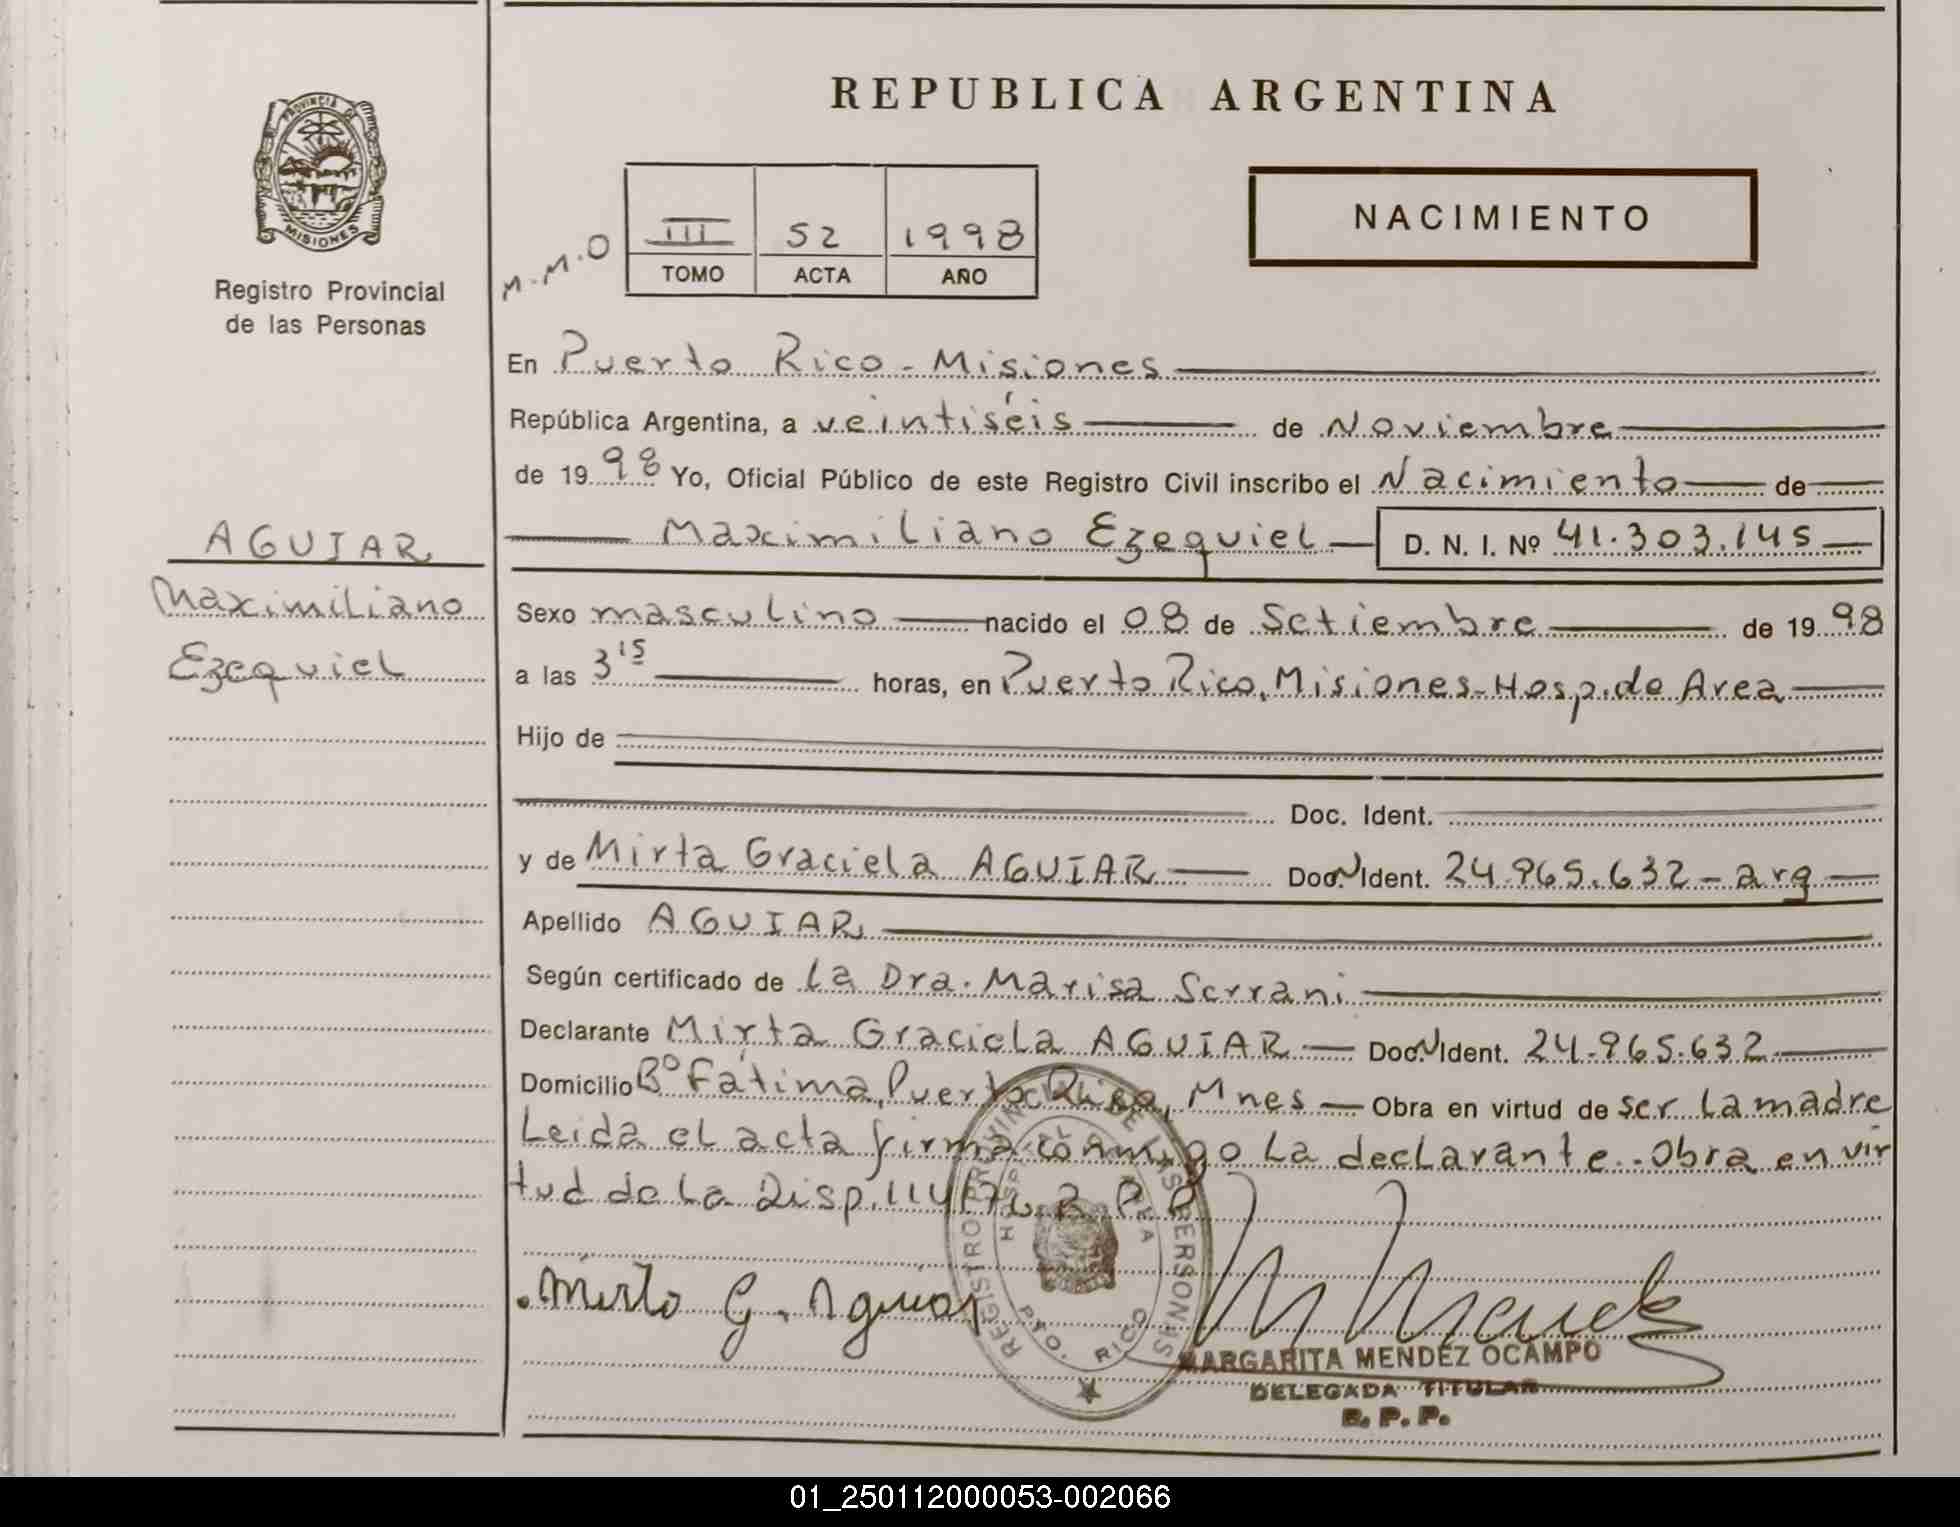 REPUBLICA ARGENTINA
PROVINCIA DE
MISIONES
Registro Provincial
de las Personas
NACIMIENTO
M.M.O
III 52 1998
TOMO ACTA AÑO
En Puerto Rico - Misiones
República Argentina, a veintiséis de Noviembre
de 1998 Yo, Oficial Público de este Registro Civil inscribo el Nacimiento de
Maximiliano Ezequiel D. N. I. Nº 41.303.145
AGUIAR
Maximiliano
Ezequiel
Sexo masculino nacido el 08 de Setiembre de 1998
a las 3 15 horas, en Puerto Rico, Misiones-Hosp. de Area
Hijo de
Doc. Ident.
y de Mirta Graciela AGUIAR Doc. N Ident. 24.965.632 - arg
Apellido AGUIAR
Según certificado de la Dra. Marisa Serrani
Declarante Mirta Graciela AGUIAR Doc. N Ident. 24.965.632
Domicilio Bº Fátima, Puerto Rico, Mnes Obra en virtud de ser la madre
Leida el acta firma conmigo la declarante.. Obra en vir
tud de la Disp. 114
REGISTRO PROVINCIAL DE LAS PERSONAS
HOSPITAL AREA
PTO. RICO
Mirta G. Aguiar
M Mendez
MARGARITA MENDEZ OCAMPO
DELEGADA TITULAR
R. P. P.
01_250112000053-002066